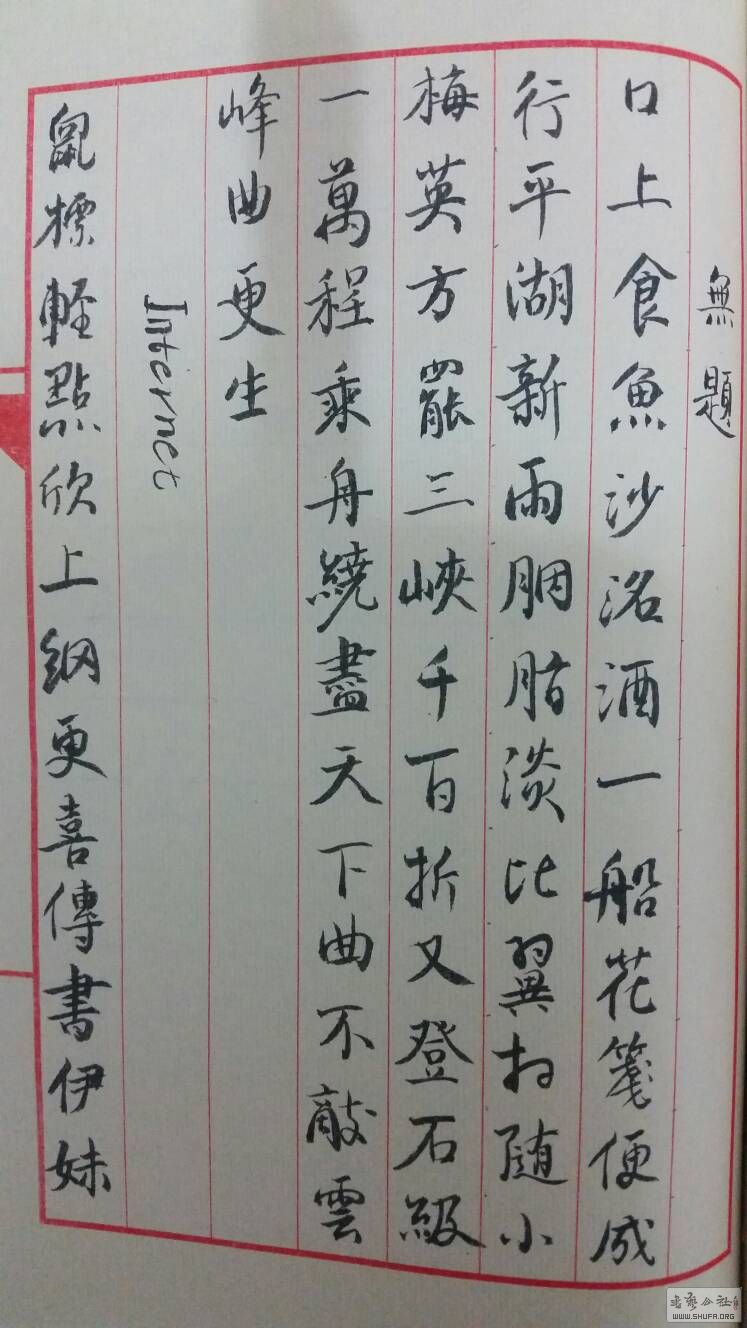 無題
口上食魚沙洺酒一船花箋便成
行平湖新雨胭脂淡比翼相隨小
梅英方罷三峽千百折又登石級
一萬程乘舟繞盡天下曲不敲雲
峰曲更生
Internet
鼠標輕點欣上網更喜傳書伊妹
WWW.SHUFA.ORG